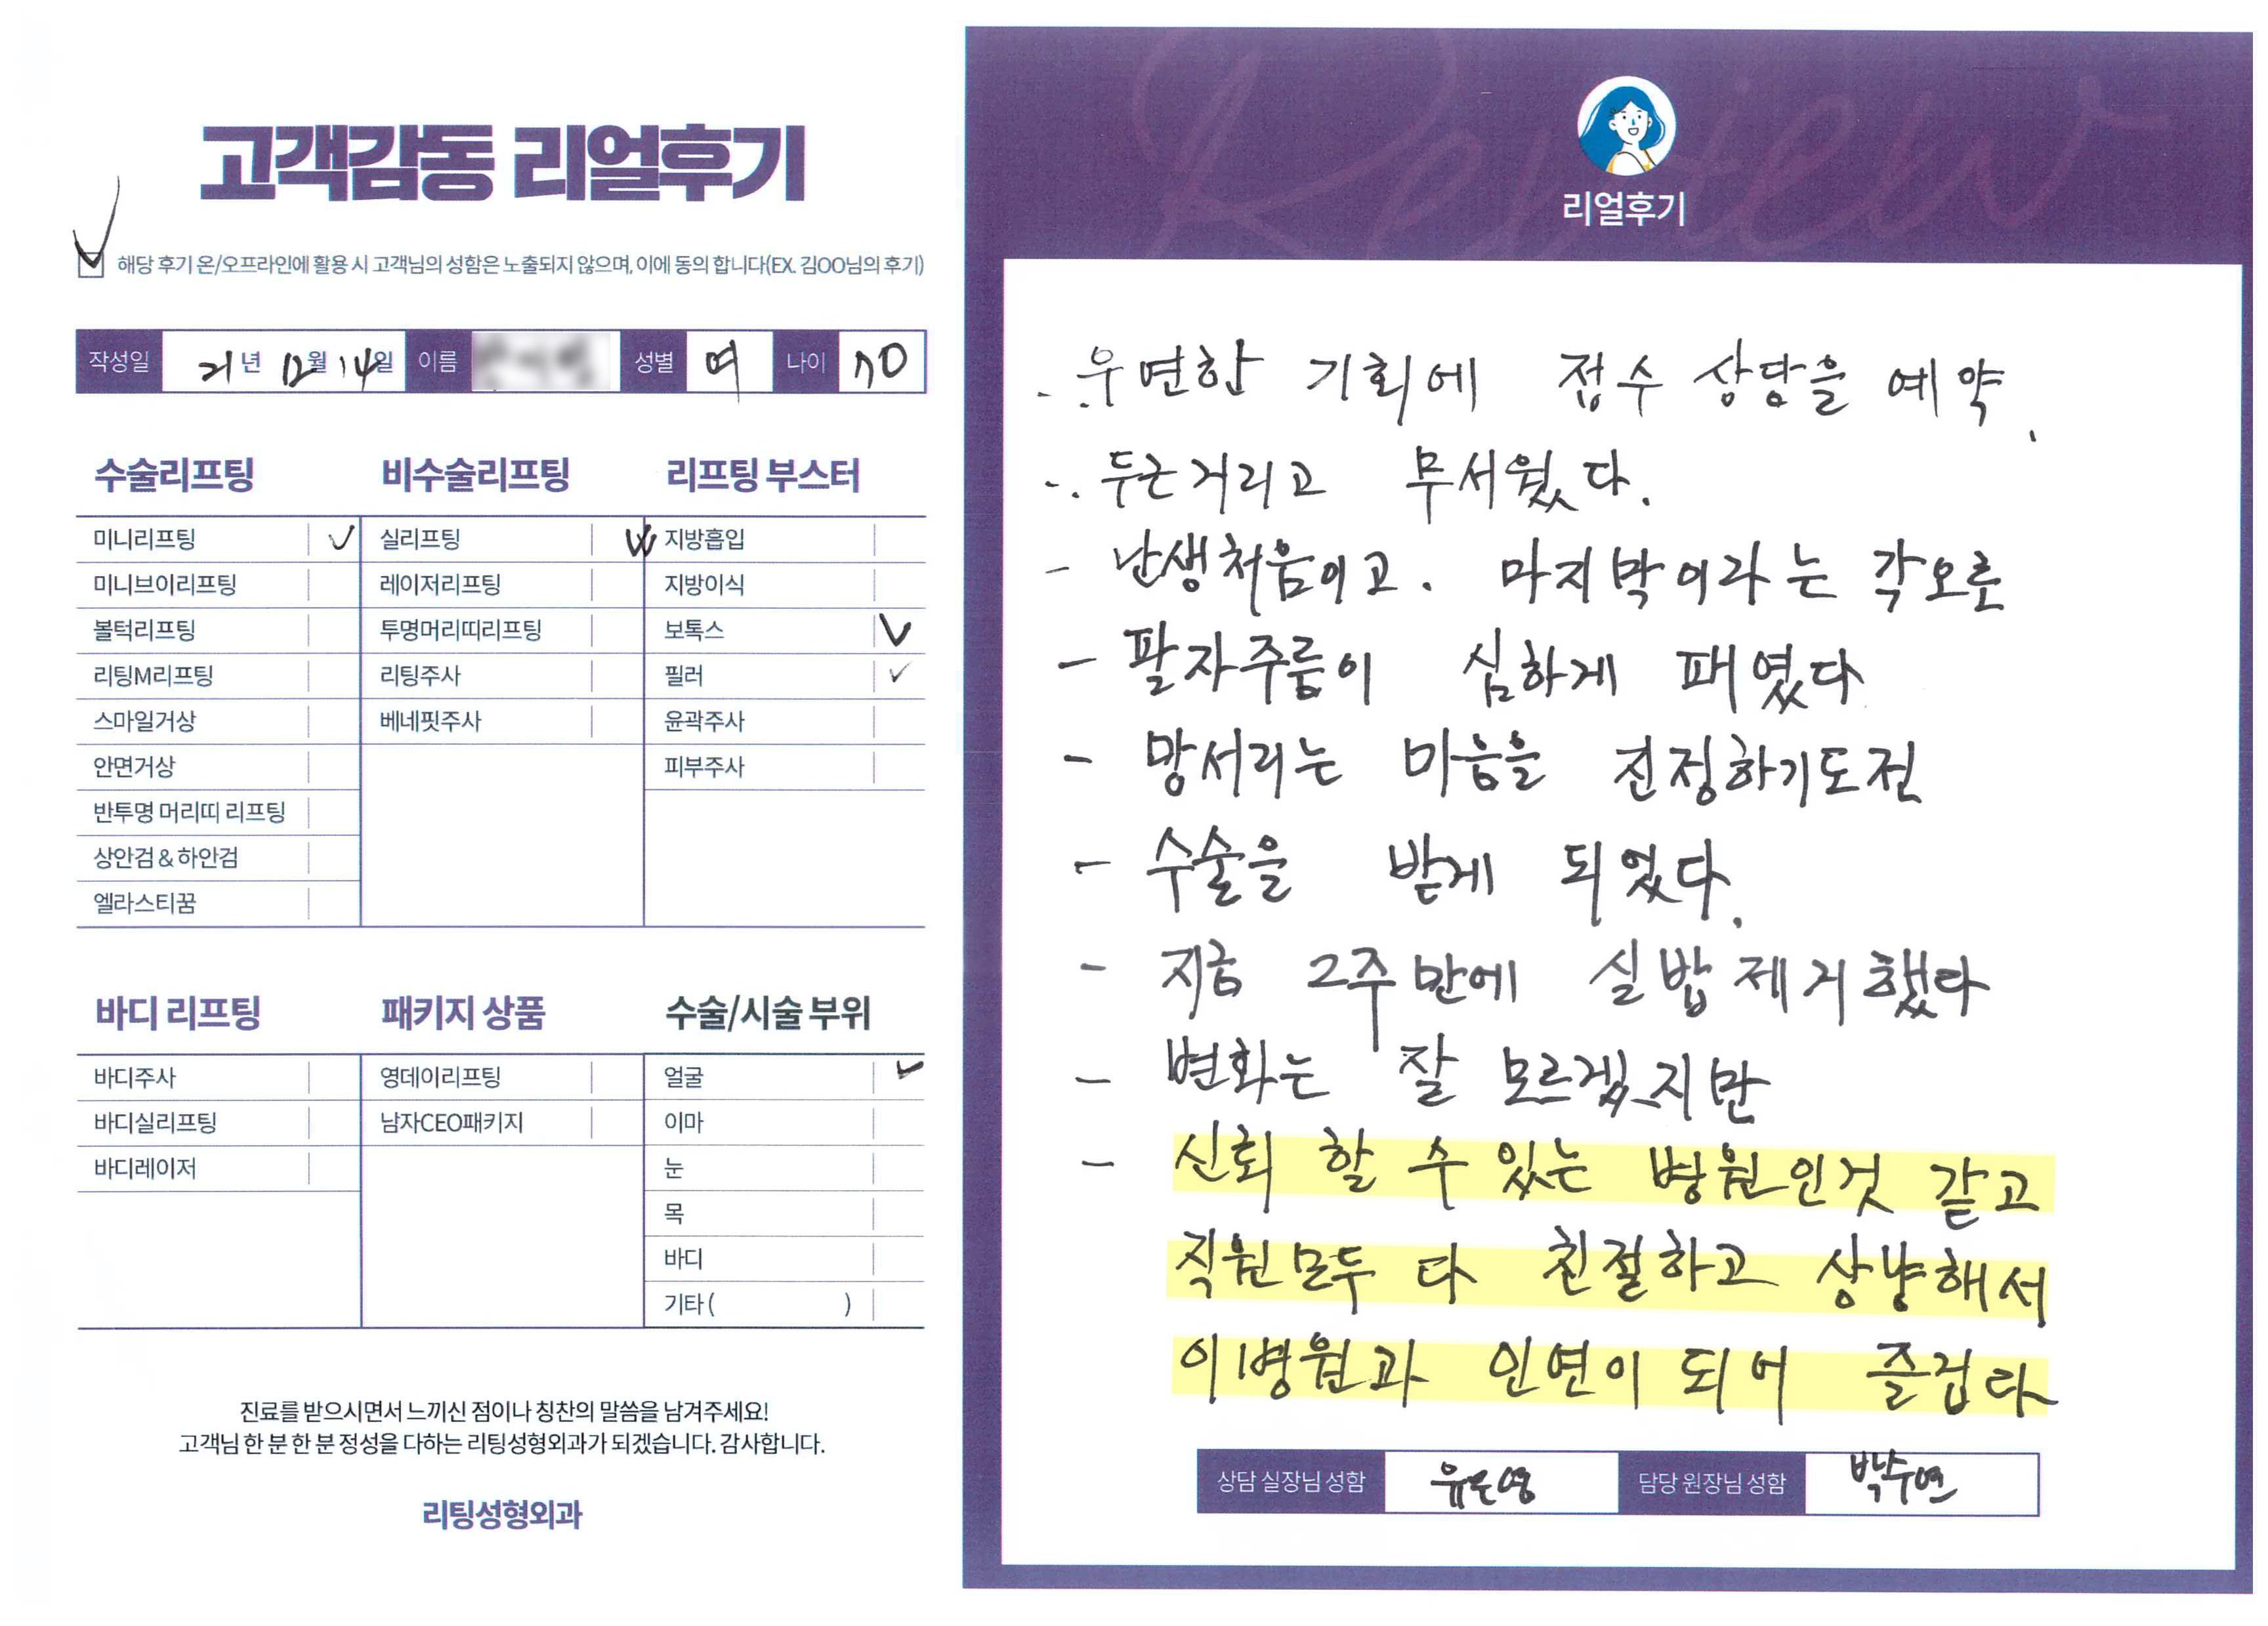 고객감동 리얼후기
해당 후기 온/오프라인에 활용 시 고객님의 성함은 노출되지 않으며, 이에 동의 합니다(EX. 김OO님의 후기)
작성일 21년 12월 14일 이름 성별 여 나이 70
수술리프팅
미니리프팅
미니브이리프팅
볼턱리프팅
리팅M리프팅
스마일거상
안면거상
반투명 머리띠 리프팅
상안검 & 하안검
엘라스티꿈
비수술리프팅
실리프팅
레이저리프팅
투명머리띠리프팅
리팅주사
베네핏주사
리프팅 부스터
지방흡입
지방이식
보톡스
필러
윤곽주사
피부주사
바디 리프팅
바디주사
바디실리프팅
바디레이저
패키지 상품
영데이리프팅
남자CEO패키지
수술/시술 부위
얼굴
이마
눈
목
바디
기타 ( )
진료를 받으시면서 느끼신 점이나 칭찬의 말씀을 남겨주세요!
고객님 한 분 한 분 정성을 다하는 리팅성형외과가 되겠습니다. 감사합니다.
리팅성형외과
Review
리얼후기
우연한 기회에 접수 상담을 예약.
두근거리고 무서웠다.
- 난생처음이고. 마지막이라는 각오로
- 팔자주름이 심하게 패였다
- 망서리는 마음을 진정하기도전
- 수술을 받게 되었다.
- 지금 2주만에 실밥제거했다
- 변화는 잘 모르겠지만
- 신뢰 할 수 있는 병원인것 같고
직원모두 다 친절하고 상냥해서
이병원과 인연이 되어 즐겁다
상담 실장님 성함 유은영 담당 원장님 성함 박수연